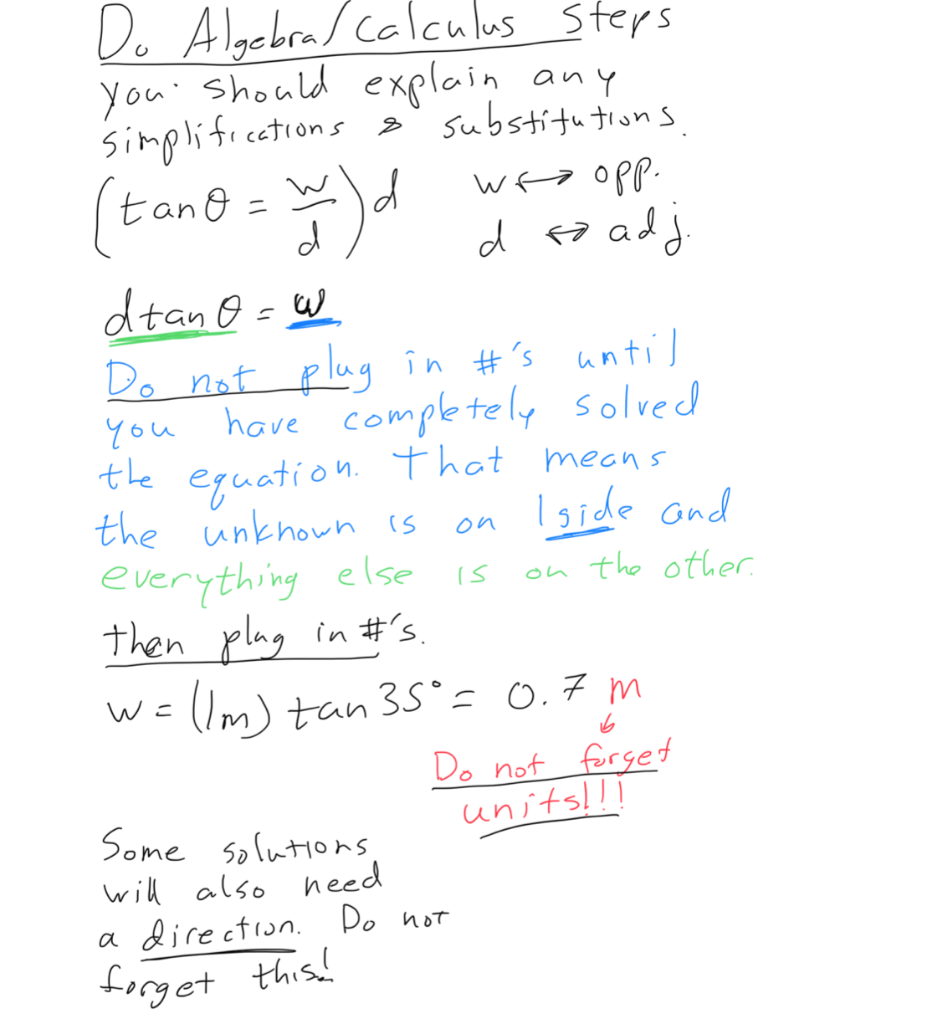 Do Algebra/Calculus Steps
you should explain any
simplifications & substitutions.
(tanθ = w/d)d w ↔ opp.
d ↔ adj.
dtanθ = w
Do not plug in #'s until
you have completely solved
the equation. That means
the unknown is on 1 side and
everything else is on the other.
then plug in #'s.
w = (1m) tan 35° = 0.7 m
Do not forget
units!!!
Some solutions
will also need
a direction. Do not
forget this!